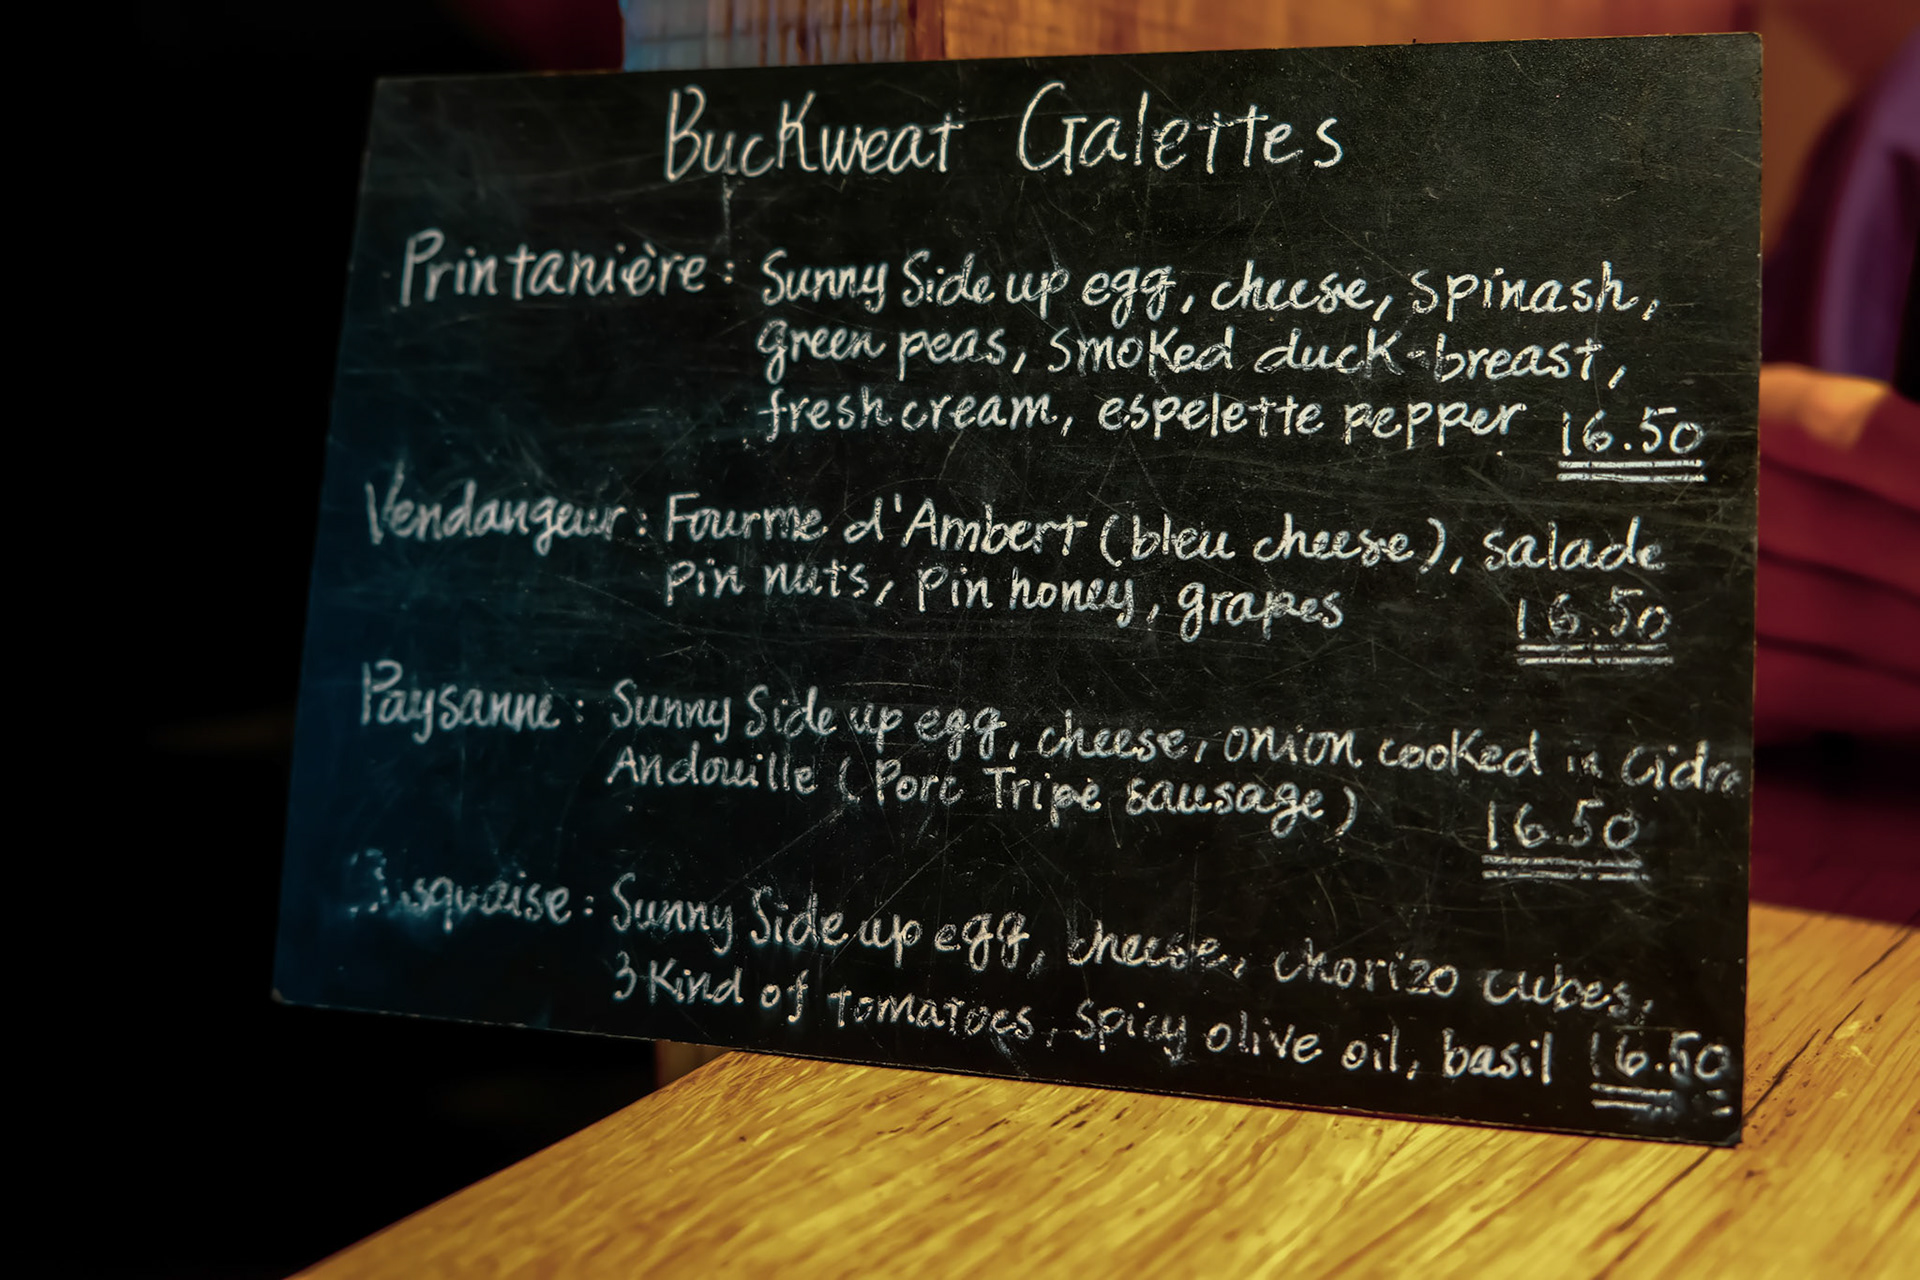 Buckweat Galettes
Printanière: Sunny Side up egg, cheese, spinash,
green peas, smoked duck-breast,
fresh cream, espelette pepper 16.50
Vendangeur: Fourme d'Ambert (bleu cheese), salade
pin nuts, pin honey, grapes
16.50
Paysanne: Sunny Side up egg, cheese, onion cooked in
Andouille (Porc Tripe sausage)
16.50
Sunny Side up egg, cheese, chorizo cubes,
3 Kind of tomatoes, spicy olive oil, basil 16.50